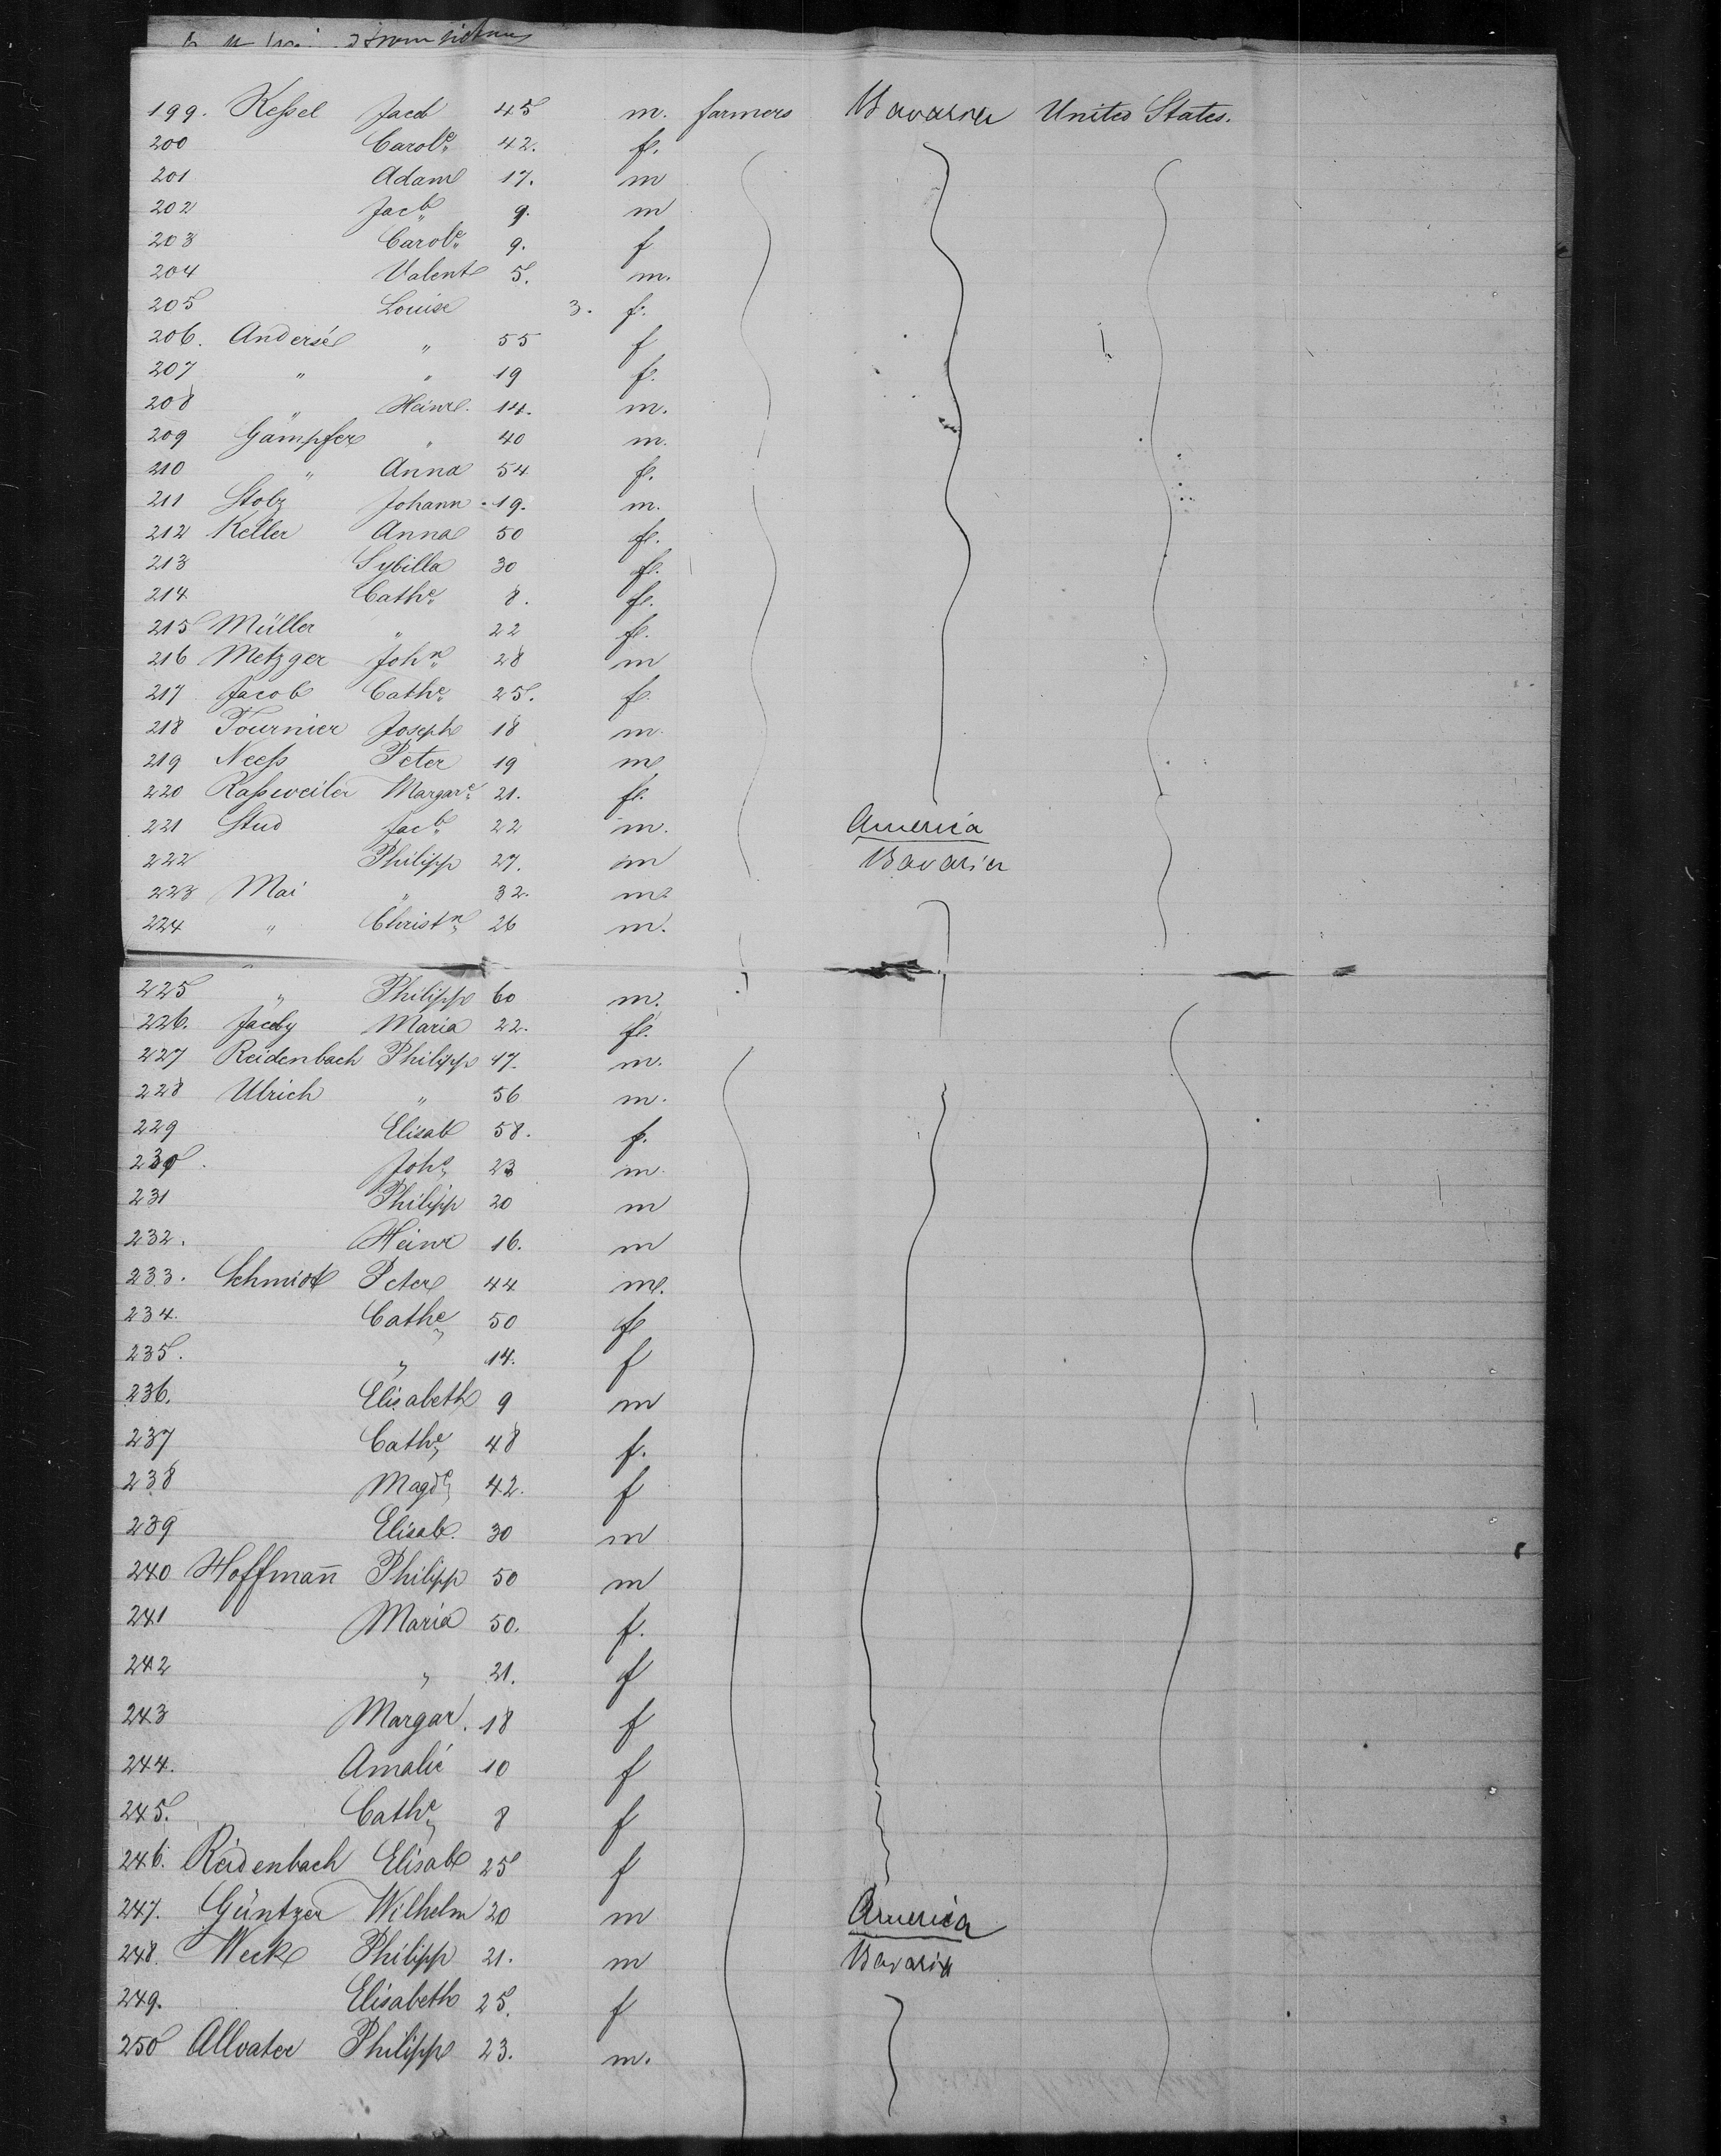 199. Keßel Jacob 45 m. farmers Bavaria United States.
200 Carole 42. f.
201 Adam 17. m
202 Jacb 9. m
203 Carole 9. f
204 Valent 5. m.
205 Louise 3. f.
206. Andersé " 55 f
207 " " 19 f.
208 " Heinr. 14. m.
209 Gämpfer " 40 m.
210 " Anna 54 f.
211 Stolz Johann 19. m.
212 Keller Anna 50 f.
213 Sybilla 30 f.
214 Cathe 8. f.
215 Müller " 22 f.
216 Metzger John 28 m
217 Jacob Cathe 25. f.
218 Fournier Joseph 18 m
219 Neeß Peter 19 m
220 Raßweiler Margare 21. f.
221 Stud Jacb 22 m. America
222 Philipp 27. m Bavaria
223 Mai " 32. m
224 " Christn 26 m.
225 " Philipp 60 m.
226. Jacoby Maria 22. f.
227 Reidenbach Philipp 47. m.
228 Ulrich " 56 m.
229 Elisab 58. f.
230. Johs 23 m.
231 Philipp 20 m
232. Heinr 16. m
233. Schmidt Peter 44 m.
234. Cathe 50 f
235. " 14. f
236. Elisabeth 9 m
237 Cathe 48 f.
238 Magde 42. f
239 Elisab. 30 m
240 Hoffmañ Philipp 50 m
241 Maria 50. f.
242 " 21. f
243 Margar. 18 f
244. Amalie 10 f
245. Cathe 8 f
246. Reidenbach Elisab 25 f
247. Güntzer Wilhelm 20 m America
248. Weck Philipp 21. m Bavaria
249. Elisabeth 25. f
250 Allvater Philipp 23. m.